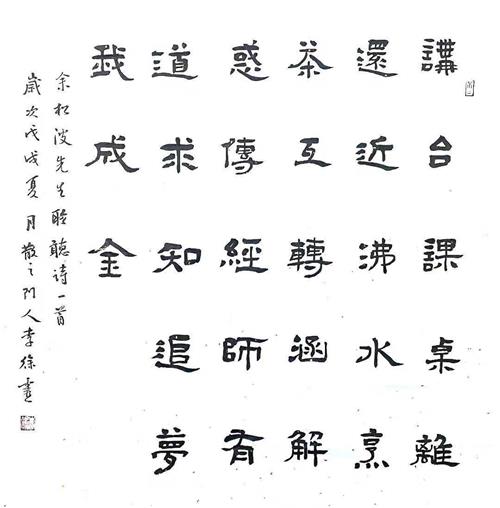 講台課桌離
還近沸水烹
茶互轉涵解
惑傳經師有
道求知追夢
我成金
余松波先生聆聽诗一首
歲次戊戌夏月散之门人李徐書